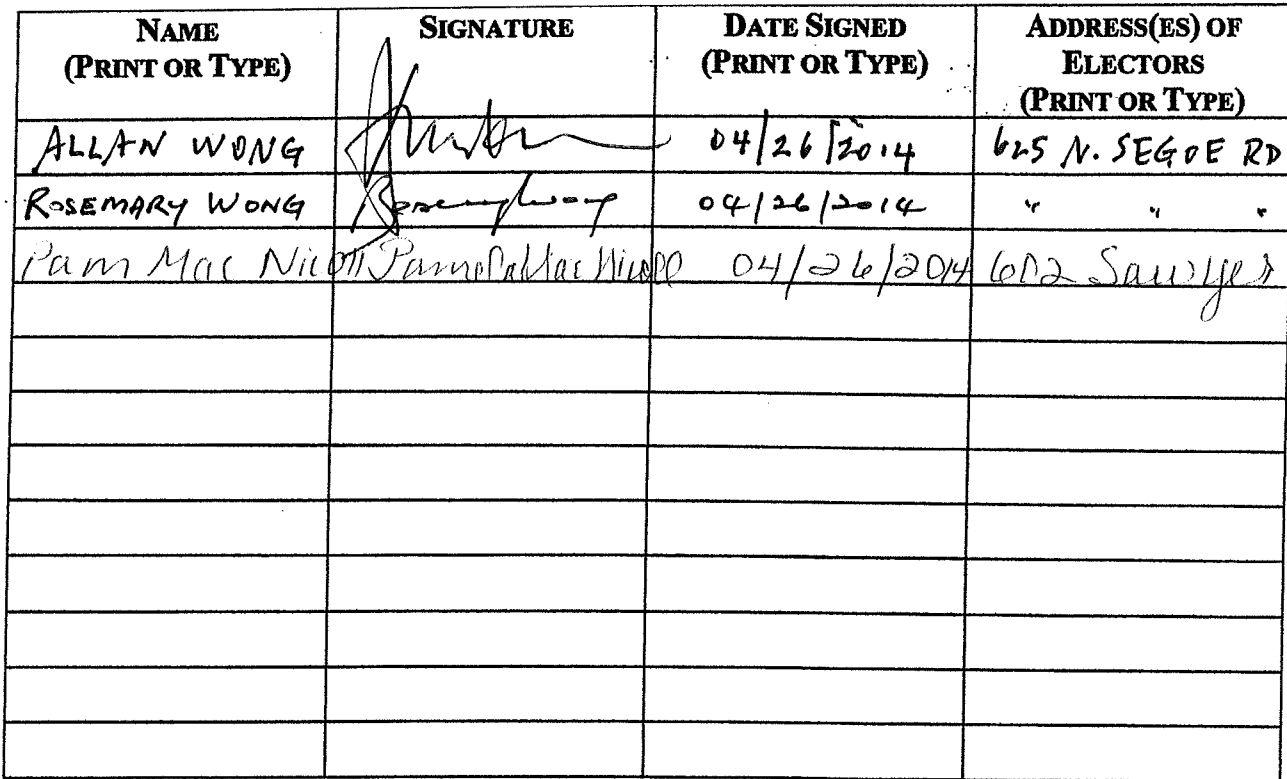 NAME (PRINT OR TYPE) SIGNATURE DATE SIGNED (PRINT OR TYPE) ADDRESS(ES) OF ELECTORS (PRINT OR TYPE)
ALLAN WONG 04/26/2014 625 N. SEGOE RD
ROSEMARY WONG Rosemary Wong 04/26/2014 " " "
Pam Mac Nicoll Pamela Mac Nicoll 04/26/2014 602 Sawyer